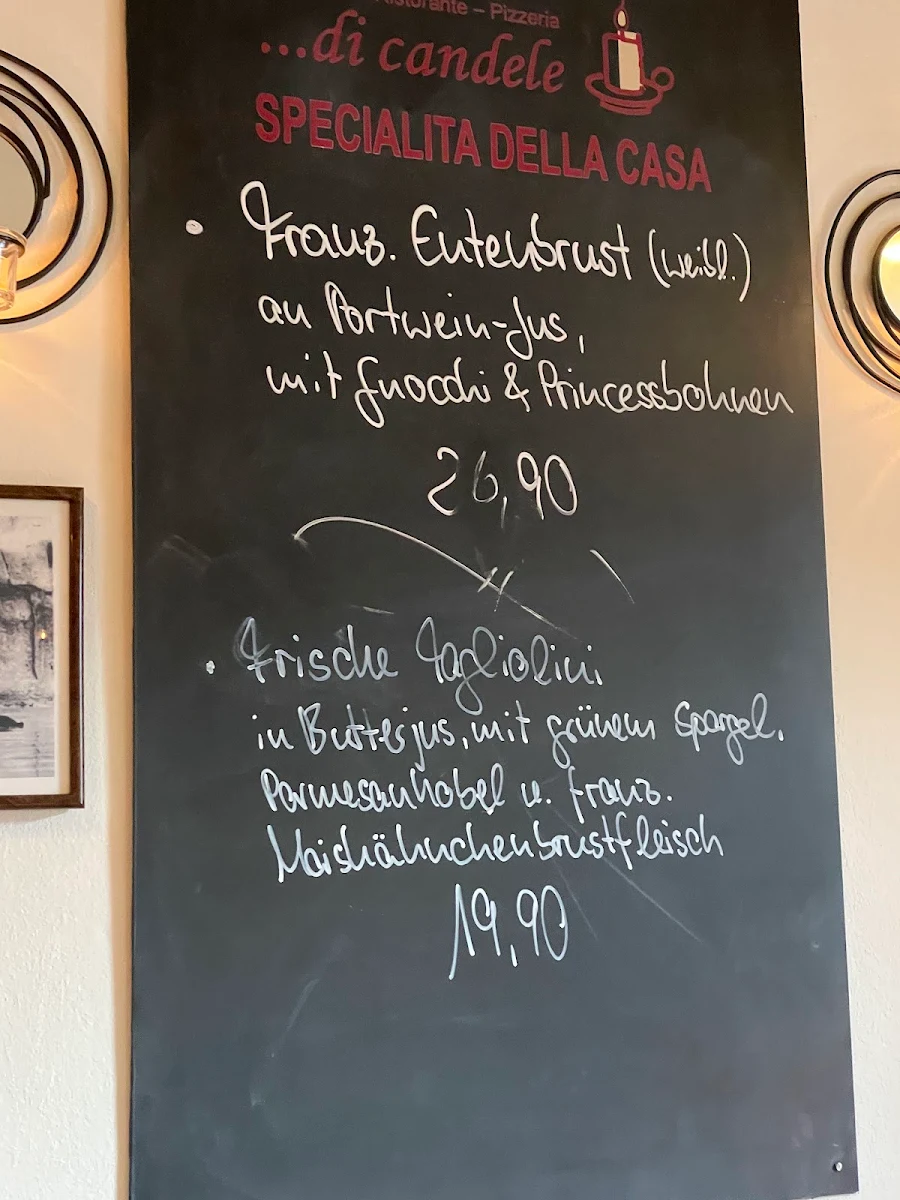 Ristorante – Pizzeria
...di candele
SPECIALITA DELLA CASA
• Franz. Entenbrust (weibl.)
an Portwein-Jus,
mit Gnocchi & Princessbohnen
26,90
• Frische Tagliolini
in Butterjus, mit grünem Spargel,
Parmesanhobel u. franz.
Maishähnchenbrustfleisch
19,90